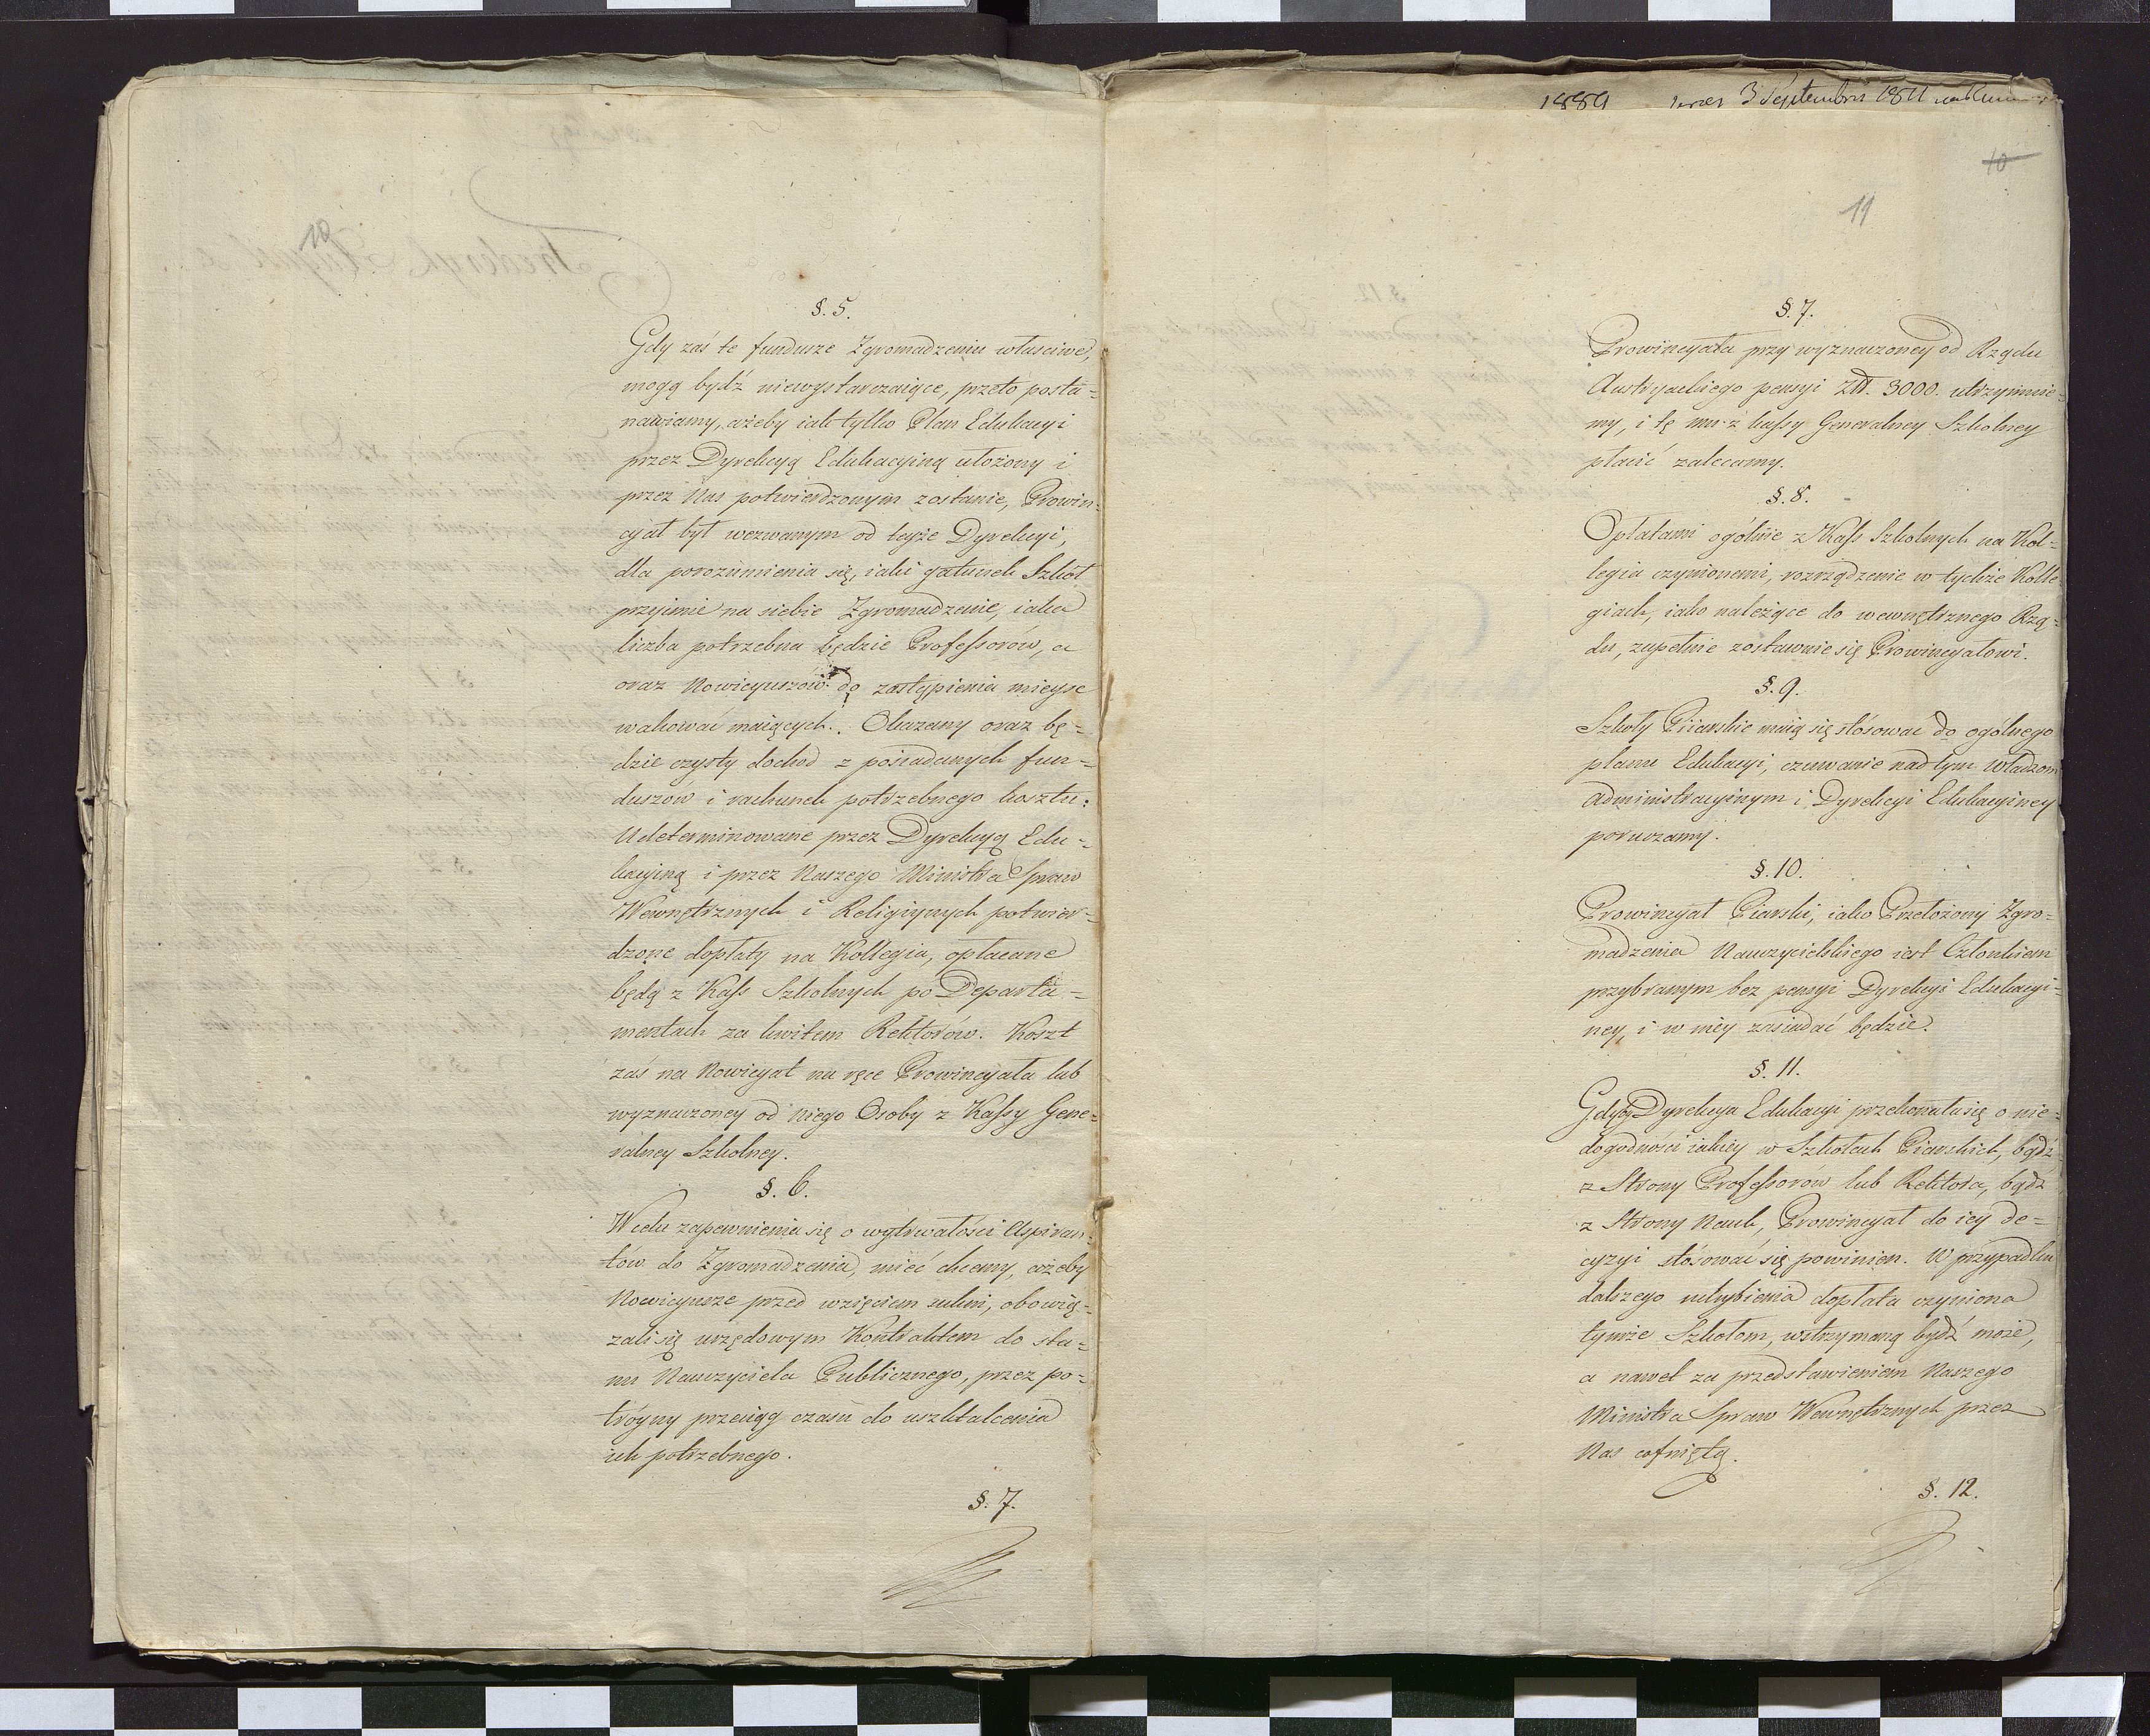 §. 5.
Gdy zaś te fundusze Zgromadzeniu właściwe,
mogą bydź niewystarczaiące, przeto posta=
nawiamy, ażeby iak tylko Plan Edukacyi
przez Dyrekcyą Edukacyiną ułożony i
przez Nas potwierdzonym zostanie, Prowin=
cyał był wezwanym od teyże Dyrekcyi,
dla porozumienia się, iaki gatunek Szkół
przyimie na siebie Zgromadzenie, iaka
liczba potrzebna będzie Professorów, a
oraz Nowicyuszów do zastąpienia mieysc
wakować maiących. Okazany oraz bę=
dzie czysty dochod z posiadanych fun=
duszów i rachunek potrzebnego kosztu.
Udeterminowane przez Dyrekcyą Edu=
kacyiną i przez Naszego Ministra Spraw
Wewnętrznych i Religiynych potwier=
dzone dopłaty na Kollegia, opłacane
będą z Kass Szkolnych po Departa=
mentach za kwitem Rektorów. Koszt
zaś na Nowicyat na ręce Prowincyała lub
wyznaczoney od niego Osoby z Kassy Gene=
ralney Szkolney.
§. 6.
W celu zapewnienia się o wytrwałości Aspiran=
tów do Zgromadzenia, mieć chcemy, ażeby
Nowicyusze przed wzięciem sukni, obowią=
zali się urzędowym Kontraktem do sta=
nu Nauczyciela Publicznego, przez po=
tróyny przeciąg czasu do uształcenia
ich potrzebnego.
§. 7.
3 Septembris 1811
10
11
§. 7.
Prowincyała przy wyznaczoney od Rządu
Austryackiego pensyi Złł. 3000. utrzymuie=
my, i tę mu z kassy Generalney Szkolney
płacić zalecamy.
§. 8.
Opłatami ogólnie z Kass Szkolnych na Kol=
legia czynionemi, rozrządzenie w tychże Kolle
giach, iako należące do wewnętrznego Rzą=
du, zupełnie zostawuie się Prowincyałowi.
§. 9.
Szkoły Piiarskie maią się stósować do ogólnego
planu Edukacyi, czuwanie nad tym Władzom
Administracyinym i Dyrekcyi Edukacyiney
poruczamy.
§. 10.
Prowincyał Piarski, iako Przełożony Zgro=
madzenia Nauczycielskiego iest Członkiem
przybranym bez pensyi Dyrekcyi Edukacyi=
ney, i w niey zasiadać będzie.
§. 11.
Gdyby Dyrekcya Edukacyi przekonała się o nie=
dogodności iakiey w Szkołach Piarskich, bądź
z Strony Professorów lub Rektora, bądź
z Strony Nauk, Prowincyał do iey de=
cyzyi stósować się powinien. W przypadku
dalszego uchybienia dopłata czyniona
tymże Szkołom, wstrzymaną bydź może,
a nawet za przedstawieniem Naszego
Ministra Spraw Wewnętrznych przez
Nas cofniętą.
§. 12.